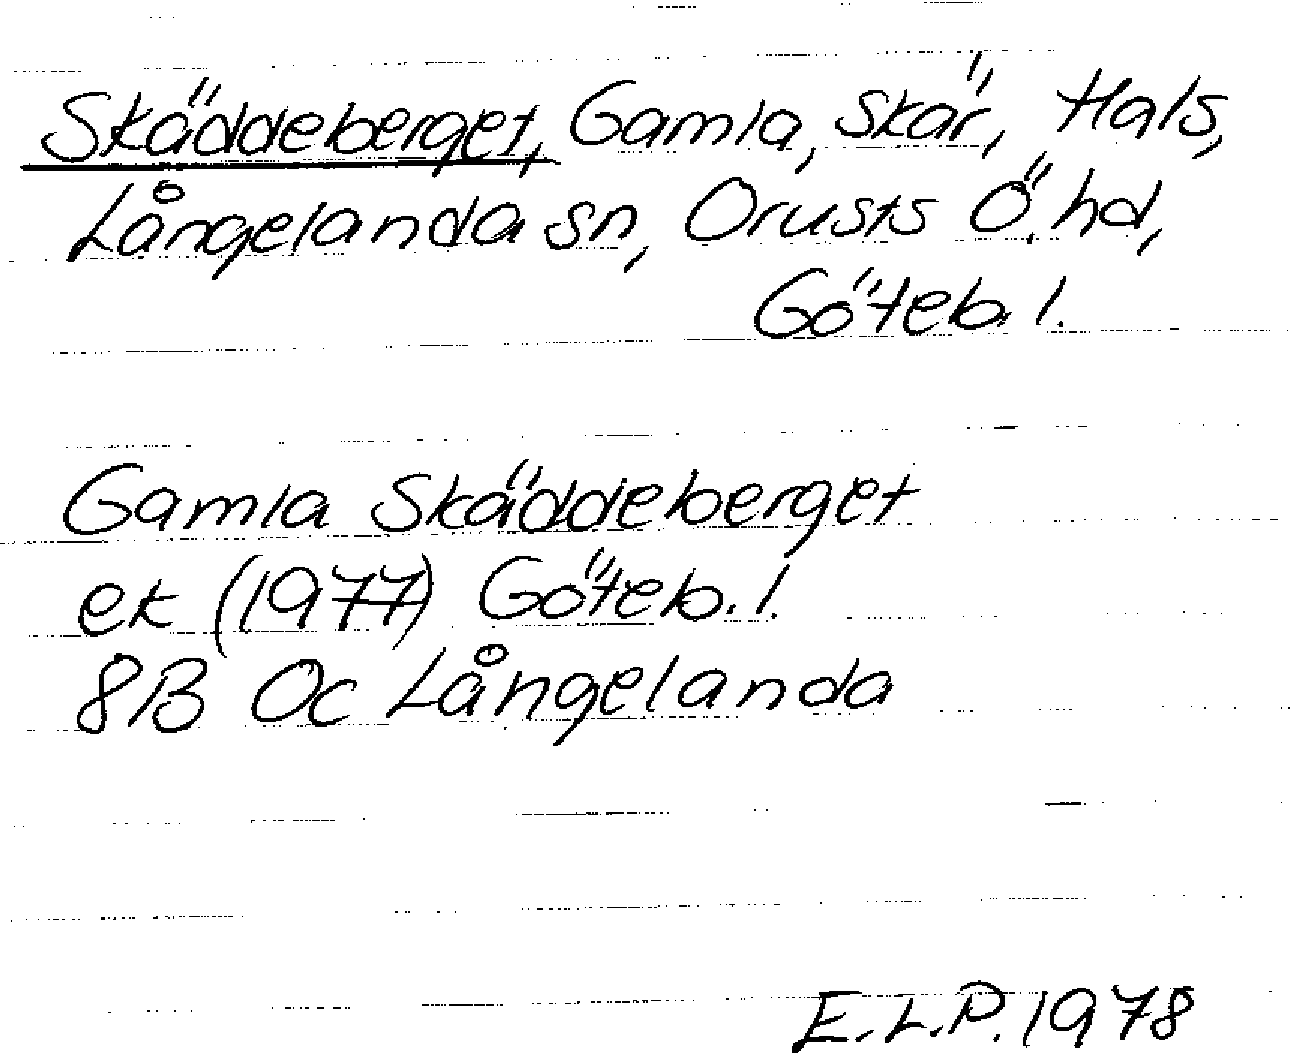 Skäddeberget, Gamla, skär, Hals,
Långelanda sn, Orusts Ö. hd,
Göteb. l.
Gamla Skäddeberget
ek (1977) Göteb. l.
8B Oc Långelanda
E.L.P. 1978